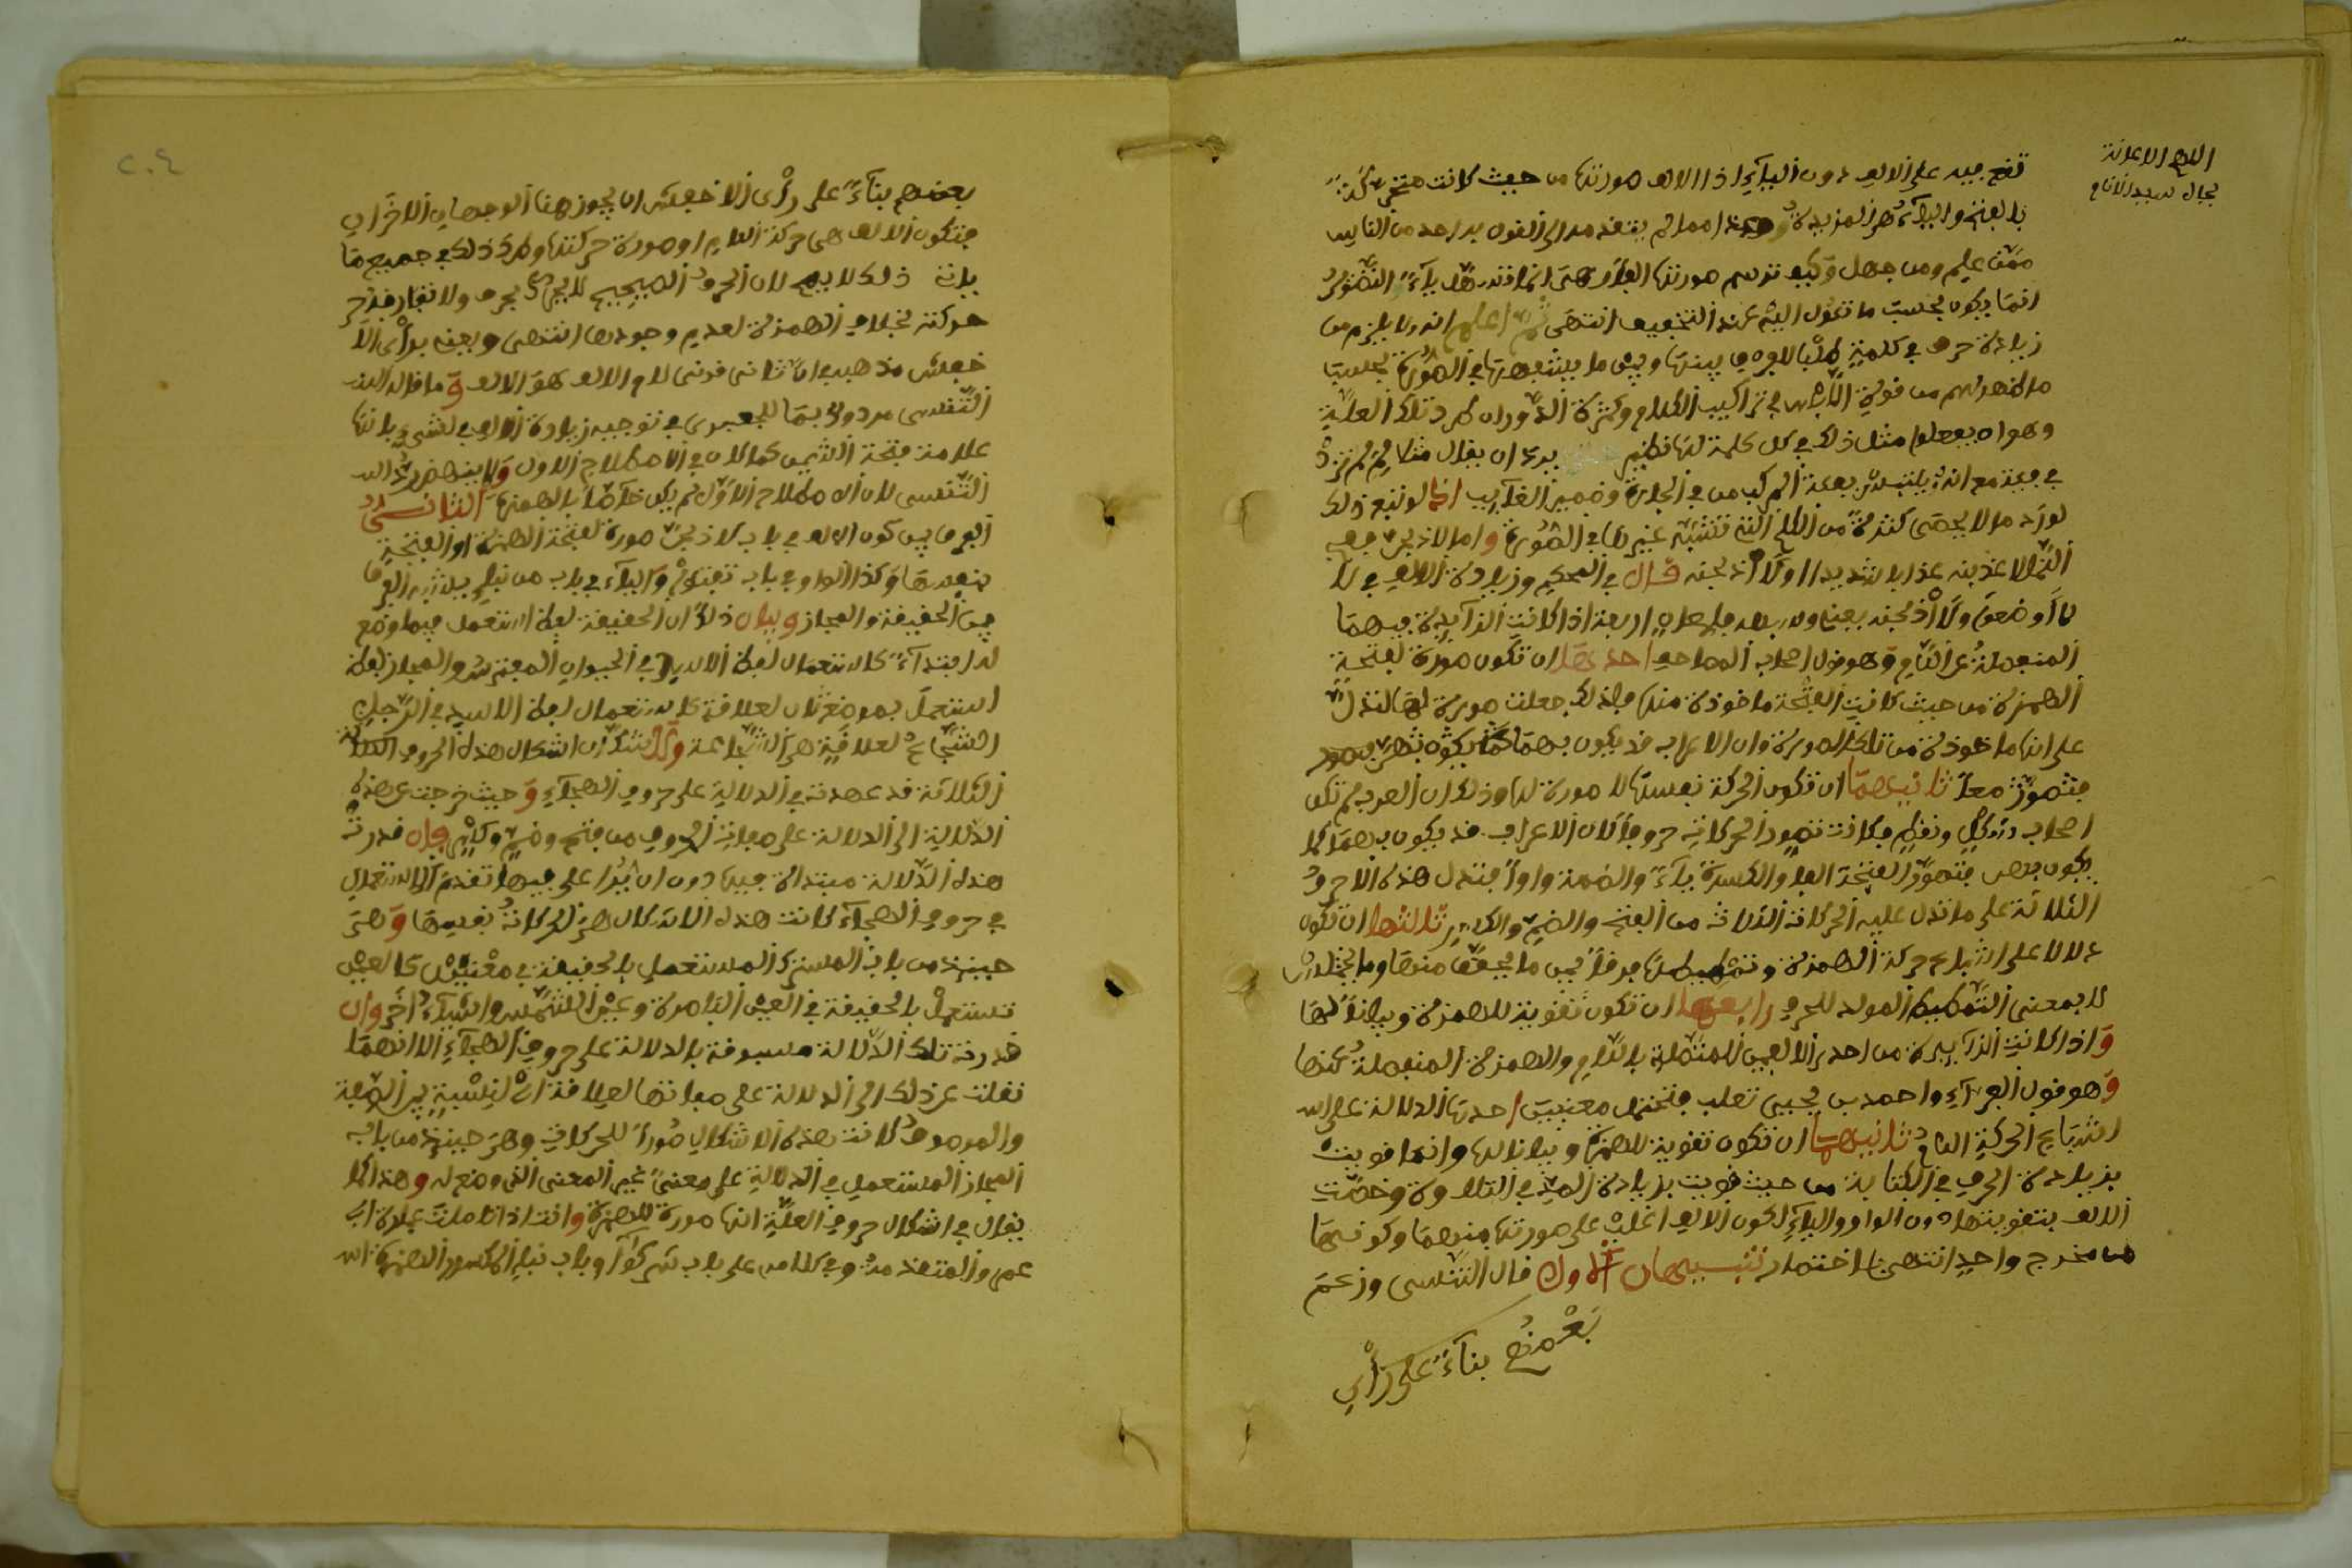 اللهم الاعانة
بجاه سيد الانام
تقع فيه على الالف دون الياء اذ الالف صورتها من حيث كانت متحركة
بالفتح والياء هي المزيدة وهذا مما لم يتقدمه الى القول به احد من الناس
ممن علم ومن جهل وكيف ترسم صورتها الفا وهي انما تدبر هل ياء التصوير
انما يكون بحسب ما تؤول اليه عند التخفيف انتهى ثم اعلم انه ولا يلزم من
زيادة حرف في كلمة طلبا للفرق بينها وبين ما يشبهها في الصورة بحسب
ما ظهر لهم من قوة اللبس في تراكيب الكلام وكثرة الدوران طرد تلك العلة
وهو ان يفعلوا مثل ذلك في كل كلمة لها نظير ان يقال مثلا لم لم تزد
في فية مع انه يلتبس بفئة المركب من في الجارة وضمير الغايب اذ لو تتبع ذلك
لورد ما لا يحصى كثرة من الكلم التي تشبه غيرها في الصورة واما لاذبحن ففي
التنزيل لاعذبنه عذابا شديدا او لااذبحنه قال في المحكم وزيادة الالف في لا
لااوضعوا ولااذبحنه يعني ولاوضعوا لمعان اربعة اذا كانت الزايدة فيهما
المنفصلة عن اللام وهو قول اصحاب المصاحف احدها ان تكون صورة لفتحة
الهمزة من حيث كانت الفتحة ماخوذة منها فلذلك جعلت صورة لها لتدل
على انها ماخوذة من تلك الصورة وان الاعراب قد يكون بهما
ثانيهما ان تكون الحركة نفسها لا صورة لها وذلك ان العرب لم تكن
اصحاب شكل ونقط فكانت تصور الحركات حروفا لان الاعراب قد يكون بها كما
يكون بهن فتصور الفتحة الفا والكسرة ياء والضمة واوا فتدل هذه الاحرف
الثلاثة على ما تدل عليه الحركات الثلاث من الفتح والضم والكسر ثالثها ان تكون
دلالة على اشباع حركة الهمزة وتمطيطها فرقا بين ما يحقق منها وما يختلس
لا بمعنى التمطيط المولد للحرف رابعها ان تكون تقوية للهمزة وبيانا لها
واذا كانت الزايدة من احدى الالفين المتصلة باللام والهمزة المنفصلة عنها
وهو قول الفراء واحمد بن يحيى ثعلب فتحتمل معنيين احدها الدلالة على
اشباع الحركة ثانيهما ان تكون تقوية للهمزة وبيانا لها وانما قويت
بزيادة الحرف في الكتابة من حيث قويت بزيادة المد في التلاوة وخصت
الالف بتقويتها دون الواو والياء لكون الالف اغلب على صورتها منهما وكونهما
من مخرج واحد انتهى باختصار تنبيهان الاول قال التنسي وزعم
بعضهم بناء على رأي
٢٠٤
بعضهم بناء على رأي الاخفش ان يجوز هنا الوجهان الاخران
فتكون الالف هي حركة اللام او صورة حركتها وطرد ذلك في جميع ما
يات ذلك لا يصح لان الحرف الصحيح لا يحرك بحرف ولا تفارقه
حركته بخلاف الهمزة لعدم وجودها انتهى ويعني برأي الا
خفش مذهبه ان ثاني قرني لام الالف هو الالف وما قاله
التنسي مردود بما للجعبري في توجيه زيادة الالف في لشيء بانها
علامة فتحة الشين كما كان في الاصطلاح الاول ولا ينهض رد
التنسي لان الاصطلاح الاول لم يكن خاصا بالهمزة الثاني
الفرق بين كون الالف في باب لااذبحن صورة لفتحة الهمزة او الفتحة
بنفسها وكذا الواو في باب تفتؤا والياء في باب من نبإي يلتبس الفرق
بين الحقيقة والمجاز وبيان ذلك ان الحقيقة لفظ استعمل فيما وضع
له ابتداء كاستعمال لفظ الاسد في الحيوان المفترس والمجاز لفظ
استعمل بوضع ثان لعلاقة كاستعمال لفظ الاسد في الرجل
الشجاع لعلاقة هي الشجاعة ولا شك ان اشكال هذه الحروف
الثلاثة قد عهدت في الدلالة على حروف الهجاء وحيث خرجت عن هذه
الدلالة الى الدلالة على صفات الحروف من فتح وضم وكسر فان قدرت
هذه الدلالة مبتداة فيها دون ان على فيها تقدم الاستعمال
في حروف الهجاء كانت هذه الاشكال هي الحركات نفسها وهي
حينئذ من باب المشترك المستعمل بالحقيقة في معنيين كالعين
تستعمل بالحقيقة في العين الباصرة وعين الشمس واشياء اخر وان
قدرت تلك الدلالة مسبوقة بالدلالة على حروف الهجاء الا انها
نقلت عن ذلك الى الدلالة على صفاتها لعلاقة اي لنسبة بين الصفة
والموصوف كانت هذه الاشكال صورا للحركات وهي حينئذ من باب
المجاز المستعمل في الدلالة على معنى غير المعنى الذي وضع له وهذا كما
يقال في اشكال حروف العلة انها صورة للهمزة وانت اذا تاملت عبارة ابي
عمرو المتقدمة وفي كلامه على باب شركوا وباب نبإ المكسور الهمزة